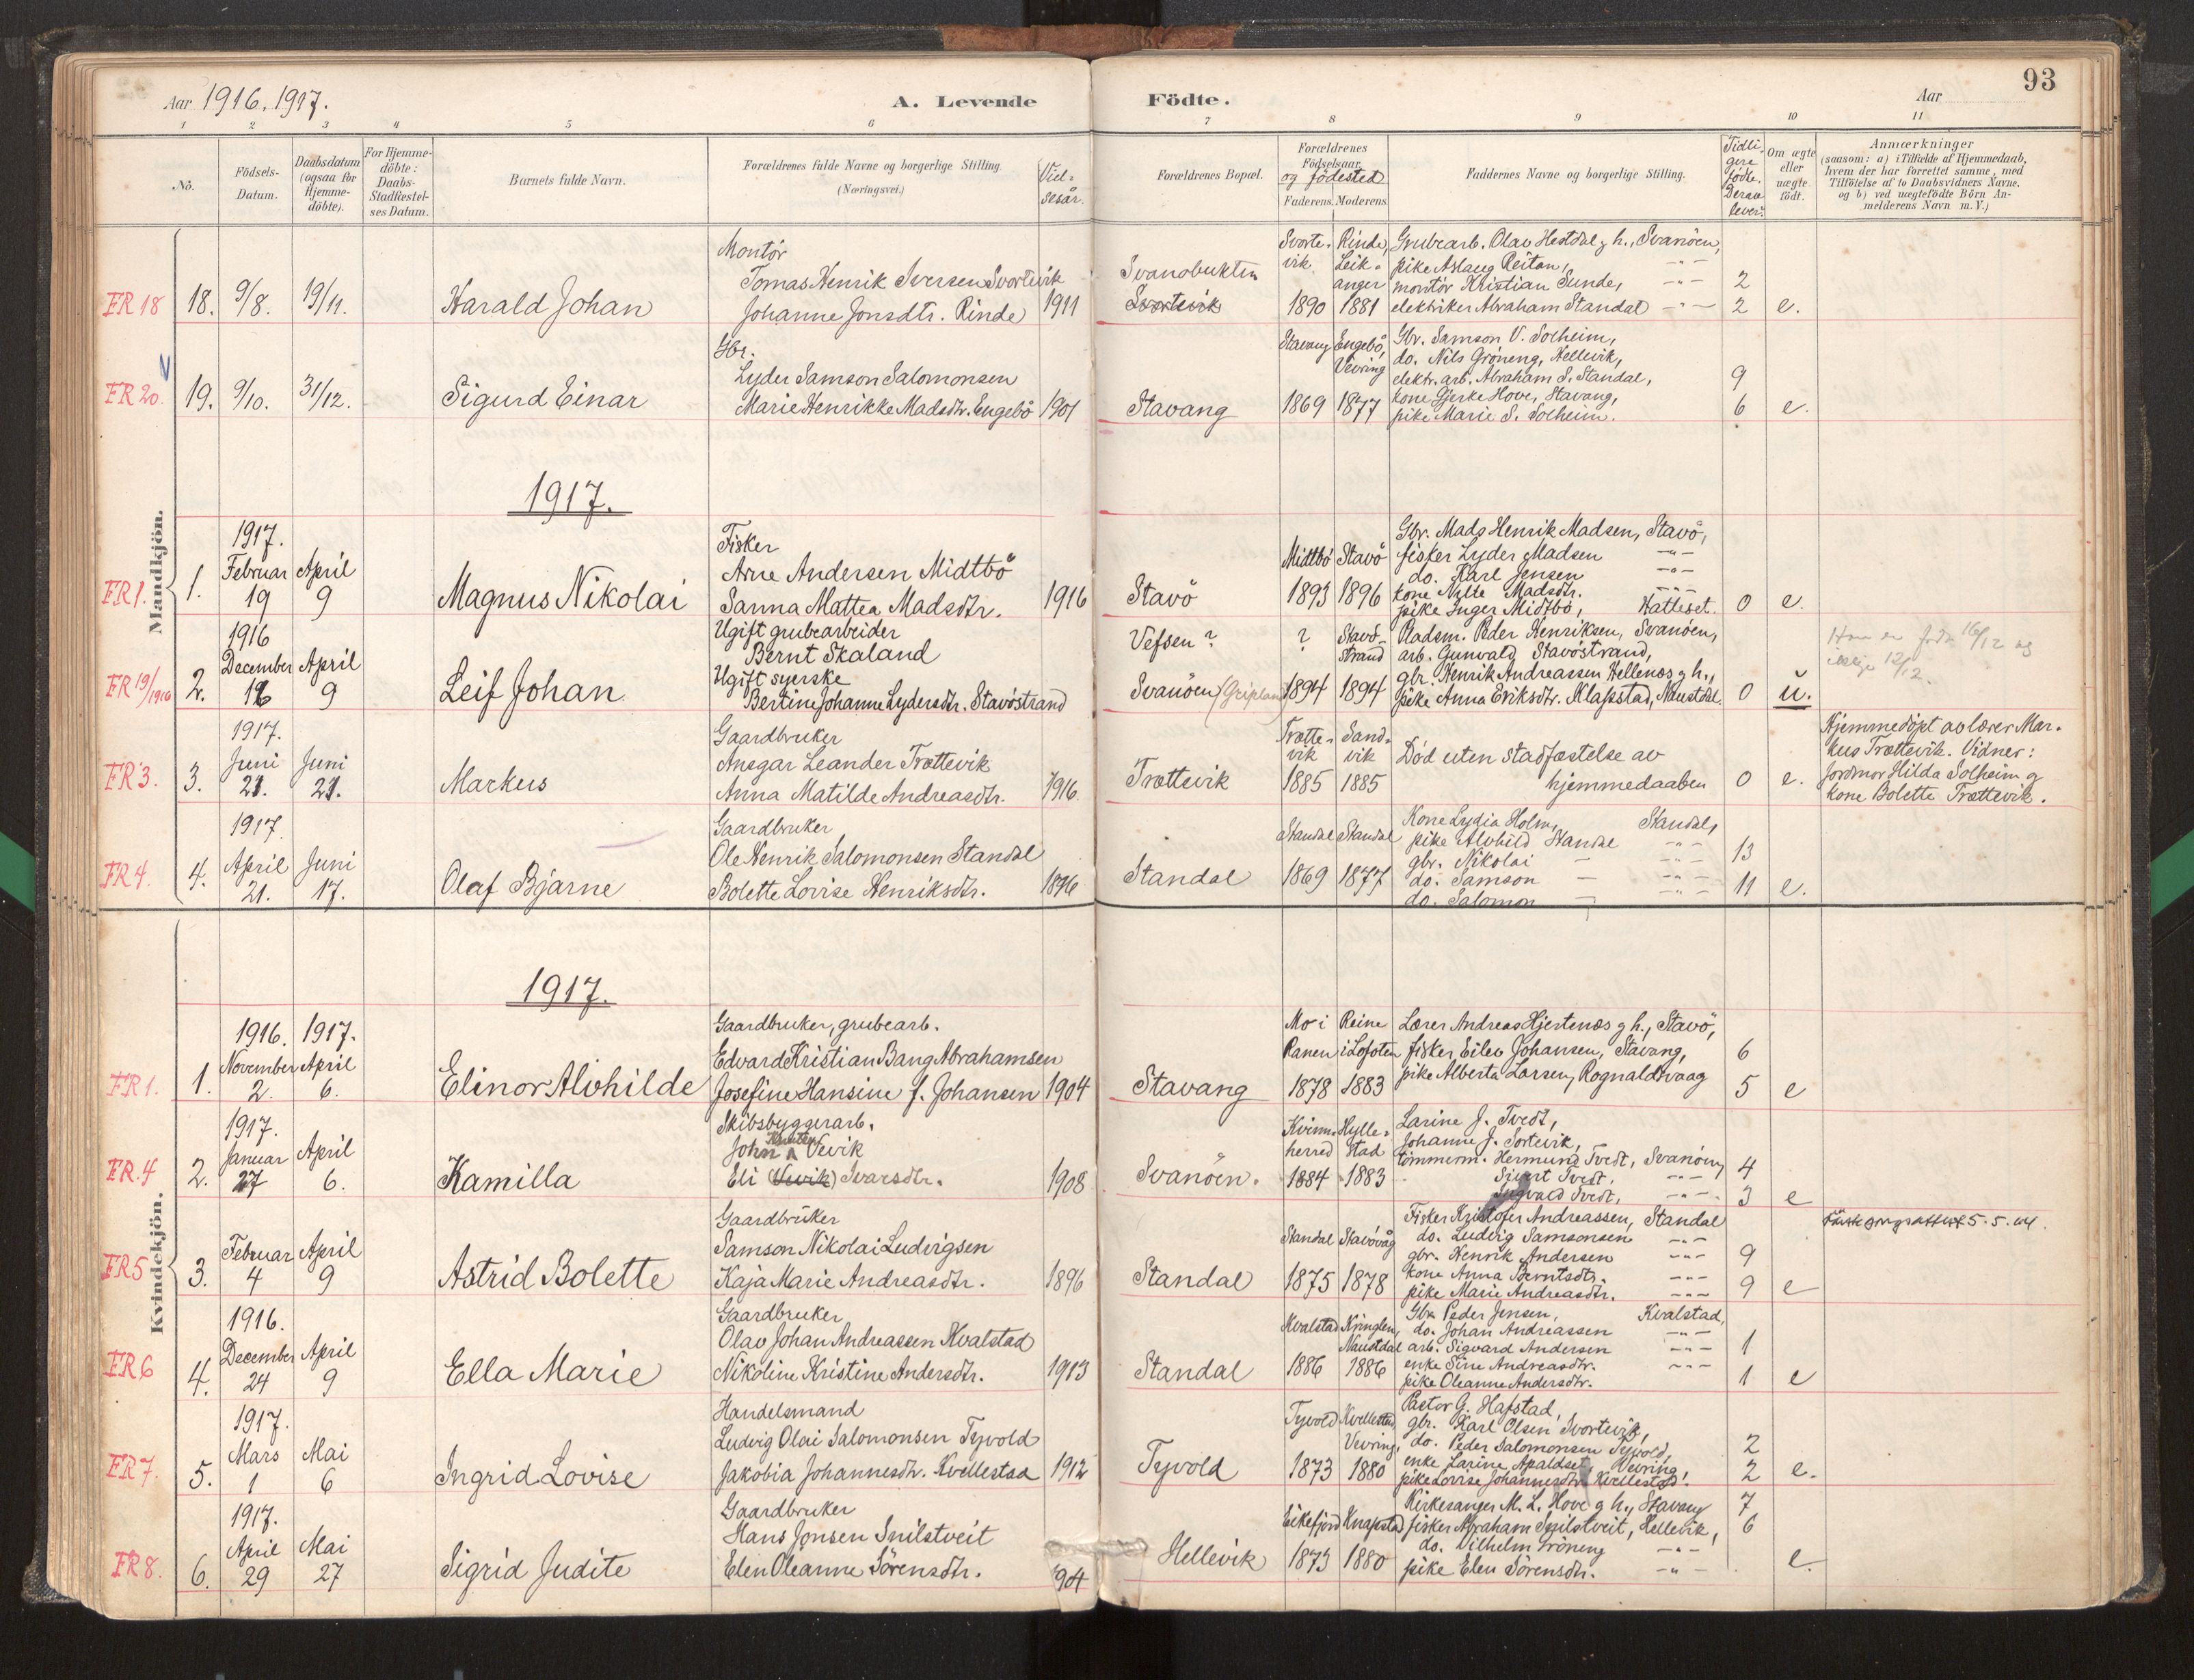 93
Aar 1916. 1917.
A. Levende Födte.
Aar
1 2 3 4 5 6 7 8 9 10 11
No.
Födsels-Datum.
Daabsdatum (ogsaa for Hjemme-döbte).
For Hjemme-döbte: Daabs-Stadfæstel-ses Datum.
Barnets fulde Navn.
Forældrenes fulde Navne og borgerlige Stilling. (Næringsvei.)
Viel-sesår.
Forældrenes Bopæl.
Forældrenes Födselsaar og födested
Faderens. Moderens.
Faddernes Navne og borgerlige Stilling.
Tidli-gere födte. Derav lever.
Om ægte eller uægte födt.
Anmærkninger
(saasom: a) i Tilfælde af Hjemmedaab, hvem der har forrettet samme, med Tilföielse af to Daabsvidners Navne, og b) ved uægtefödte Börn An-melderens Navn m. V.)
Mandkjön.
FR 18
18. 9/8. 19/11.
Harald Johan
Montör
Tomas Henrik Iversen Svortevik
Johanne Jonsdtr. Rinde 1911
Svanöbukten
Svortevik
Svorte-vik 1890
Rinde, Leik-anger 1881
Grubearb. Olav Hestdal g h., Svanöen,
pike Aslaug Reitan, -"-
montör Kristian Sunde, -"-
elektriker Abraham Standal -"-
2
2 e.
FR 20.
19. 9/10. 31/12.
Sigurd Einar
Gbr.
Lyder Samson Salomonsen
Marie Henrikke Madsdtr. Engebö 1901
Stavang
Stavang 1869
Engebö, Vevring 1877
Gbr. Samson V. Solheim,
do. Nils Gröneng, Hellevik,
elektr. arb. Abraham S. Standal,
kone Gjerke Hove, Stavang,
pike Marie S. Solheim.
9
6 e.
1917.
FR 1.
1. 1917. Februar 19 April 9
Magnus Nikolai
Fisker
Arne Andersen Midtbö
Sanna Mattea Madsdtr. 1916
Stavö
Midtbö 1893
Stavö 1896
Gbr. Mads Henrik Madsen, Stavö,
fisker Lyder Madsen -"-
do. Karl Jensen -"-
kone Nilte Madsdtr. -"-
pike Inger Midtbö, Hatleset.
0 e.
FR 19/1916
2. 1916 December 16 April 9
Leif Johan
Ugift grubearbeider
Bernt Skaland
Ugift syerske
Bertine Johanne Lydersdtr. Stavöstrand
Vefsen?
Svanöen (Gripland)
? 1894
Stavö-strand 1894
Pladsm. Peder Henriksen, Svanöen,
arb. Gunvald Stavöstrand,
gbr. Henrik Andreassen Hellenes g h.,
pike Anna Eriksdtr. Klapstad, Naustdal.
0 u.
16/12 og
12/12.
FR 3.
3. 1917. Juni 21. Juni 21.
Markus
Gaardbruker
Ansgar Leander Trættevik
Anna Matilde Andreasdtr. 1916.
Trættevik
Trætte-vik 1885
Sand-vik 1885
Död uten stadfæstelse av
hjemmedaaben
0 e.
Hjemmedöpt av lærer Mar-
kus Trættevik. Vidner:
Jordmor Hilda Solheim g
kone Bolette Trættevik.
FR 4.
4. 1917. April 21. Juni 17.
Olaf Bjarne
Gaardbruker
Ole Henrik Salomonsen Standal
Bolette Lovise Henriksdtr. 1896
Standal
Standal 1869
Standal 1877
Kone Lydia Holm, Standal,
pike Alvhild Standal -"-
gbr. Nikolai — -"-
do. Samson — -"-
do. Salomon —
13
11 e.
Kvindekjön.
1917.
FR 1.
1. 1916. November 2. 1917. April 6.
Elinor Alvhilde
Gaardbruker, grubearb.
Edvard Kristian Bang Abrahamsen
Josefine Hansine f. Johansen 1904
Stavang
Mo i Ranen 1878
Reine i Lofoten 1883
Lærer Andreas Hjertenes g h., Stavö,
fisker Eilev Johansen, Stavang,
pike Alberta Larsen, Rognaldsvaag
6
5 e
FR. 4
2. 1917. Januar 27 April 6.
Kamilla
Skibsbyggerarb.
John Vevik
Eli (Vevik) Ivarsdtr. 1908
Svanöen.
Kvinn-herred 1884
Hylle-stad 1883
Larine J. Tvedt,
Johanne J. Sortevik,
tömmerm. Hermund Tvedt, Svanöen,
Sivert Tvedt, -"-
Ingvald Tvedt, -"-
4
3 e
FR 5
3. Februar 4 April 9
Astrid Bolette
Gaardbruker
Samson Nikolai Ludvigsen
Kaja Marie Andreasdtr. 1896
Standal
Standal 1875
Stavövåg 1878
Fisker Kristofer Andreassen, Standal
do. Ludvig Samsonsen -"-
gbr. Henrik Andersen -"-
kone Anna Berntsdtr. -"-
pike Marie Andreasdtr. -"-
9
9 e
5.5.44.
FR 6
4. 1916. December 24 April 9
Ella Marie
Gaardbruker
Olav Johan Andreassen Kvalstad
Nikoline Kristine Andersdtr. 1913
Standal
Kvalstad 1886
Kringlen, Naustdal 1886
Gbr. Peder Jensen, Kvalstad,
do. Johan Andreassen -"-
arb. Sigvard Andersen -"-
enke Sine Andreasdtr. -"-
pike Oleanne Andersdtr.
1
1 e
FR 7.
5. 1917. Mars 1 Mai 6
Ingrid Lovise
Handelsmand
Ludvig Olai Salomonsen Tyvold
Jakobia Johannesdtr. Kvellestad 1912
Tyvold
Tyvold 1873
Kvellestad, Vevring, 1880
Pastor G. Hafstad,
gbr. Karl Olsen Svortevik,
do. Peder Salomonsen Tyvold,
enke Larine Apaldset, Vevring,
pike Lovise Johannesdtr. Kvellestad.
2
2 e.
FR 8.
6. 1917. April 29 Mai 27
Sigrid Judite
Gaardbruker
Hans Jonsen Snilstveit
Elen Oleanne Sörensdtr. 94
Hellevik
Eikefjord 1873
Knapstad 1880
Kirkesanger M. L. Hove g h., Stavang
fisker Abraham Snilstveit, Hellevik,
do. Vilhelm Gröneng -"-
pike Elen Sörensdtr. -"-
7
6
e.